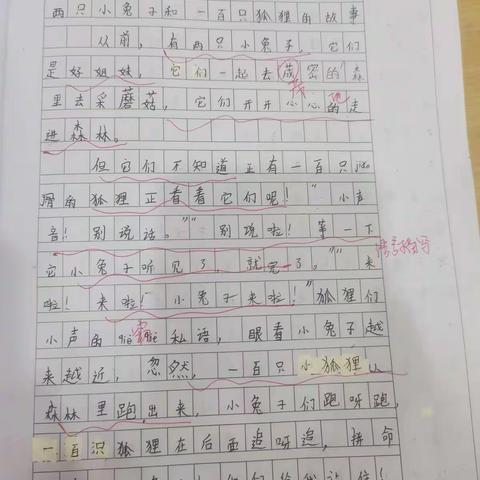 两只小兔子和一百只狐狸的故事
从前，有两只小兔子，它们
是好姐妹，它们一起去茂密的森
里去采蘑菇，它们开开心心的走
进森林。
但它们不知道正有一百只jiǎo
滑的狐狸正看着它们呢！“小声
音！别说话。”“别说啦！等一下
它小兔子听见了，就完了。”“来
啦！来啦！小兔子来啦！”狐狸们
小声的qiè qiè私语，眼看小兔子越
来越近，忽然，一百只小狐狸从
森林里跑出来，小兔子们跑呀跑，
一百只狐狸在后面追呀追，拼命